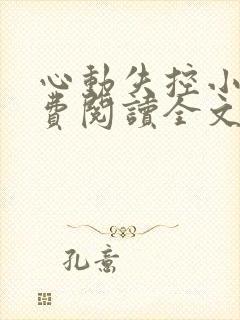 心動失控小
費閱讀全文
孔意